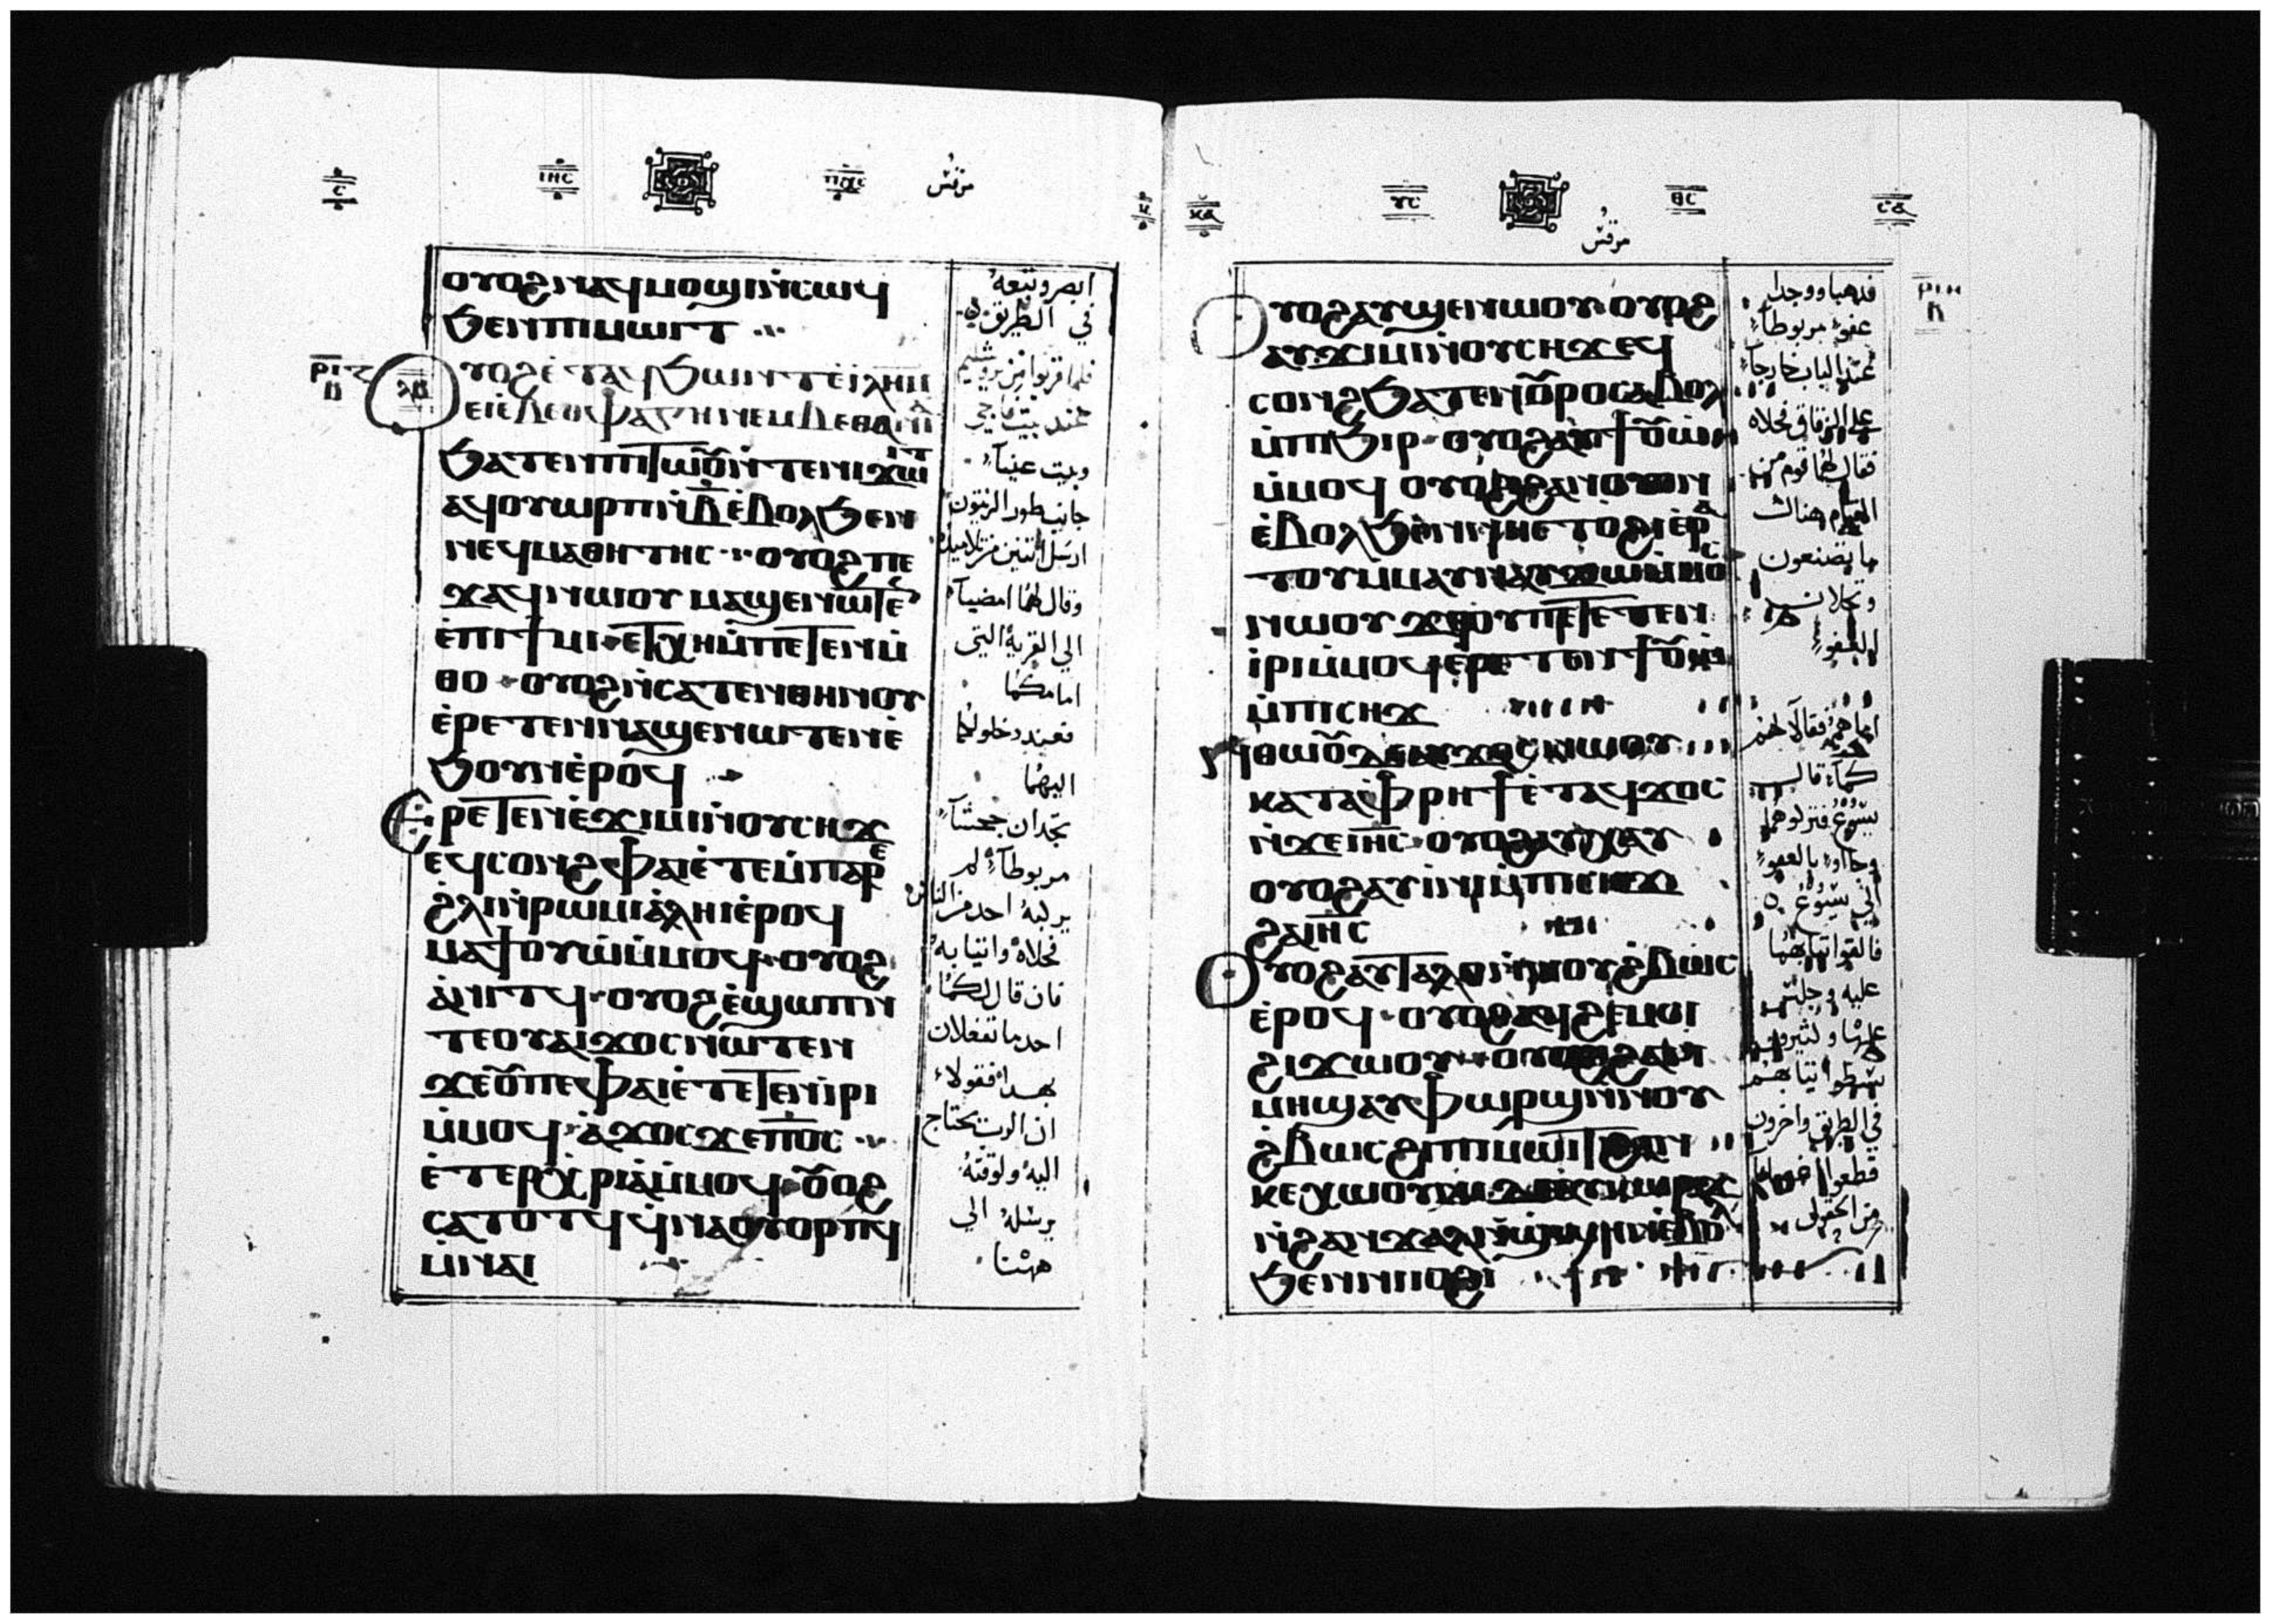 ⲓⲏⲥ ⲡⲭⲥ مرقس
ⲟⲩⲟϩ ⲛⲁϥⲙⲟϣⲓ ⲛⲥⲱϥ
ϧⲉⲛ ⲡⲓⲙⲱⲓⲧ
ⲟⲩⲟϩ ⲉⲧⲁϥϧⲱⲛⲧ ⲉⲓⲗⲏⲙ
ϧⲁⲧⲉⲛ ⲡⲓⲧⲱⲟⲩ ⲛⲧⲉ ⲛⲓϫⲱⲓⲧ
ⲁϥⲟⲩⲱⲣⲡ ⲛⲃ̅ ⲉⲃⲟⲗ ϧⲉⲛ
ⲛⲉϥⲙⲁⲑⲏⲧⲏⲥ ⲟⲩⲟϩ ⲡⲉ
ϫⲁϥ ⲛⲱⲟⲩ ⲙⲁϣⲉⲛⲱⲧⲉⲛ
ⲉⲡⲓϯⲙⲓ ⲉⲧⲭⲏ ⲙⲡⲉⲧⲉⲛⲙ
ⲑⲟ ⲟⲩⲟϩ ⲛⲥⲁⲧⲉⲛ ⲑⲏⲛⲟⲩ
ⲉⲣⲉⲧⲉⲛⲛⲁϣⲉⲛⲱⲧⲉⲛ ⲉ
ϧⲟⲩⲛ ⲉⲣⲟϥ
ⲉⲣⲉⲧⲉⲛⲉϫⲓⲙⲓ ⲛⲟⲩⲥⲏϫ
ⲉϥⲥⲟⲛϩ ⲫⲁⲓ ⲉⲧⲉ ⲙⲡⲁⲣⲉ
ϩⲗⲓ ⲛⲣⲱⲙⲓ ⲁⲗⲏⲓ ⲉⲣⲟϥ
ⲙⲁⲧⲟⲩⲱ ⲙⲙⲟϥ ⲟⲩⲟϩ
ⲁⲛⲓⲧϥ ⲟⲩⲟϩ ⲉϣⲱⲡ ⲛ
ⲧⲉ ⲟⲩⲁⲓ ϫⲟⲥ ⲛⲱⲧⲉⲛ
ϫⲉ ⲟⲩ ⲡⲉ ⲫⲁⲓ ⲉⲧⲉⲧⲉⲛⲓⲣⲓ
ⲙⲙⲟϥ ⲁϫⲟⲥ ϫⲉ ⲡⲟⲥ
ⲉⲧⲉⲣⲭⲣⲓⲁ ⲙⲙⲟϥ ⲟⲩⲟϩ
ⲥⲁⲧⲟⲧϥ ϥⲛⲁⲟⲩⲟⲣⲡϥ
ⲙⲛⲁⲓ
ابصر وتبعهُ
في الطريق
فلما قربوا من يروشليم
عند بيت فاجي
وبيت عنيا
جانب طور الزيتون
ارسل اثنين من تلاميذه
وقال لهما امضيا
الي القرية التي
امامكما
فعند دخولكما
اليها
تجدان جحشًا
مربوطًا لم
يركبه احد من الناس
فحلاه وانتيا به
فان قال لكما
احد ما تفعلان
بهذا فقولا
ان الرب يحتاج
اليه ولوقته
يرسله الي
ههنا
ⲩⲥ ⲑⲥ
مرقس
ⲟⲩⲟϩ ⲁⲩϣⲉⲛⲱⲟⲩ ⲟⲩⲟϩ
ⲁⲩϫⲓⲙⲓ ⲛⲟⲩⲥⲏϫ ⲉϥ
ⲥⲟⲛϩ ϧⲁⲧⲉⲛ ⲟⲩⲣⲟ ⲥⲁⲃⲟⲗ
ⲙⲡⲓϧⲓⲣ ⲟⲩⲟϩ
ⲙⲙⲟϥ ⲟⲩⲟϩ ϩⲁⲛⲟⲩⲟⲛ
ⲉⲃⲟⲗ ϧⲉⲛ ⲛⲏ ⲉⲧⲟϩⲓ ⲉⲣⲁ
ⲧⲟⲩ ⲙⲙⲁⲩ ⲛⲁⲩϫⲱ ⲙⲙⲟⲥ
ⲛⲱⲟⲩ ϫⲉ ⲟⲩ ⲡⲉⲧⲉⲧⲉⲛ
ⲓⲣⲓ ⲙⲙⲟϥ
ⲙⲡⲓⲥⲏϫ
ⲛⲑⲱⲟⲩ ⲇⲉ ⲁⲩϫⲟⲥ ⲛⲱⲟⲩ
ⲕⲁⲧⲁ ⲫⲣⲏϯ ⲉⲧⲁϥϫⲟⲥ
ⲛϫⲉ ⲓⲏⲥ ⲟⲩⲟϩ ⲁⲩⲭⲁⲩ
ⲟⲩⲟϩ ⲁⲩⲓⲛⲓ ⲙⲡⲓⲥⲏϫ
ϩⲁ ⲓⲏⲥ
ⲟⲩⲟϩ ⲁⲩⲧⲁⲗⲟ ⲛⲛⲟⲩϩⲃⲱⲥ
ⲉⲣⲟϥ ⲟⲩⲟϩ ⲁϥϩⲉⲙⲥⲓ
ϩⲓϫⲱⲟⲩ ⲟⲩⲟϩ ϩⲁⲛ
ⲙⲏϣ ⲁⲩⲫⲱⲣϣ ⲛⲛⲟⲩ
ϩⲃⲱⲥ ϩⲓ ⲡⲓⲙⲱⲓⲧ ϩⲁⲛ
ⲕⲉⲭⲱⲟⲩⲛⲓ
ⲉⲃⲟⲗ
ϧⲉⲛ ⲛⲓⲓⲟϩⲓ
فذهبا ووجدا
عفوًا مربوطًا
عند الباب خارجًا
علي الزقاق فحلاه
فقال لهما قوم من
القيام هناك
ما تصنعون
وتحلان
العفو
اما هم فقالا لهم
كما قال
يسوع فتركوهما
وجاءوا بالعفو
الي يسوع
فالقوا ثيابهما
عليه وجلس
عليها وكثيرون
بسطوا ثيابهم
في الطريق واخرون
قطعوا
من الحقول